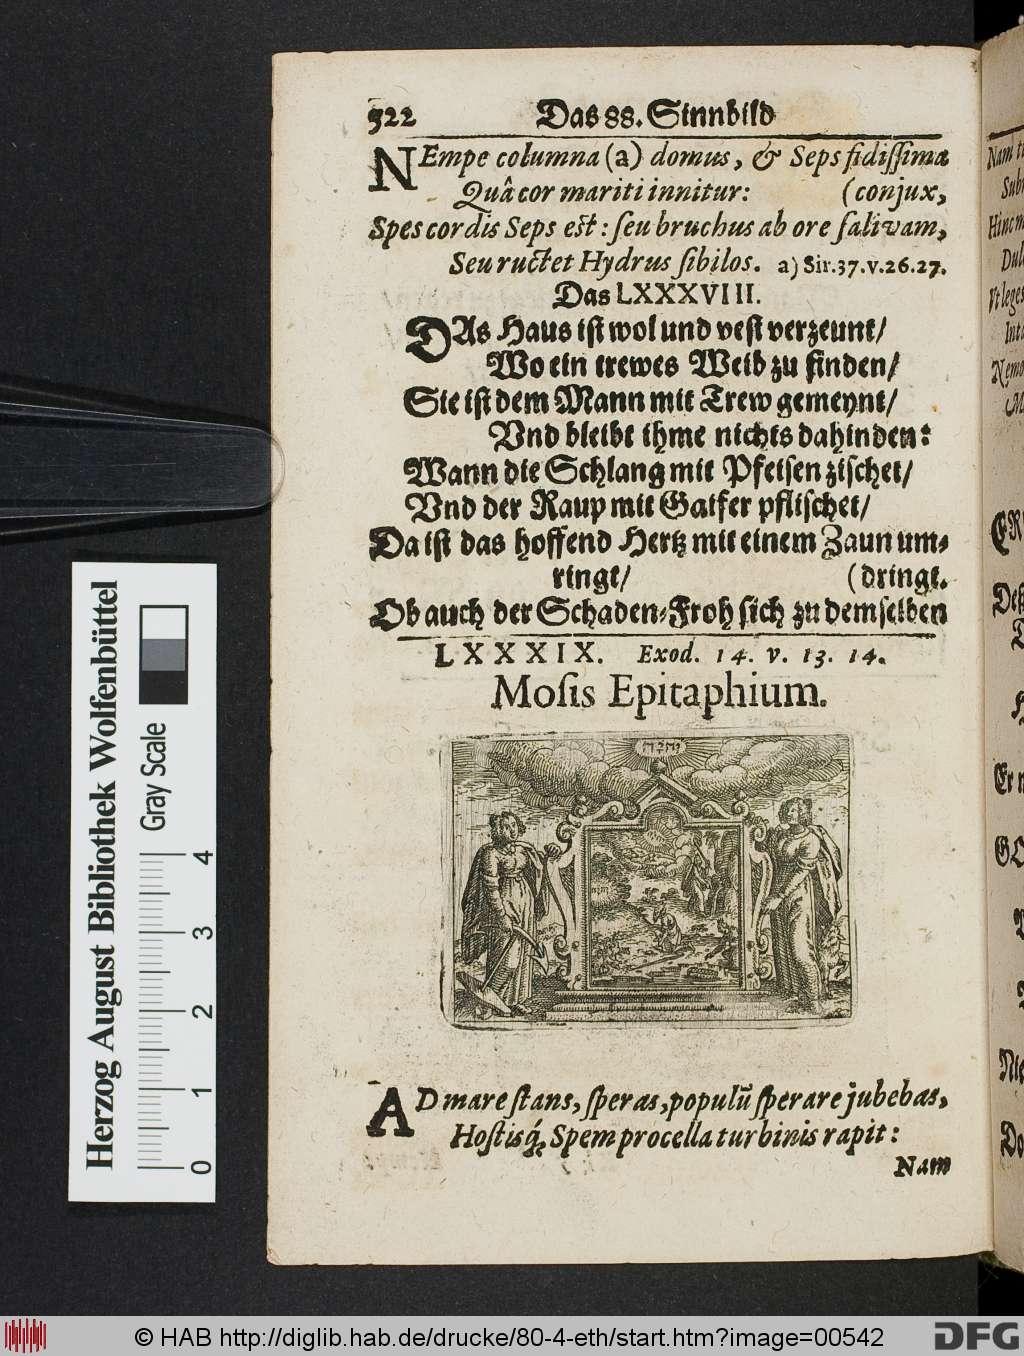 522 Das 88. Sinnbild
NEmpe columna (a) domus, & Seps fidissima
Quâ cor mariti innitur: (conjux,
Spes cordis Seps est: seu bruchus ab ore salivam,
Seu ructet Hydrus sibilos. a) Sir. 37. v. 26. 27.
Das LXXXVIII.
DAs Haus ist wol und vest verzeunt/
Wo ein trewes Weib zu finden/
Sie ist dem Mann mit Trew gemeynt/
Vnd bleibt ihme nichts dahinden:
Wann die Schlang mit Pfeisen zischet/
Vnd der Raup mit Gaifer pflischet/
Da ist das hoffend Hertz mit einem Zaun um-
ringt/ (dringt.
Ob auch der Schaden-Froh sich zu demselben
LXXXIX. Exod. 14. v. 13. 14.
Mosis Epitaphium.
יהוה
AD mare stans, speras, populū sperare jubebas,
Hostisq́; Spem procella turbinis rapit:
Nam
Nam
Hinc
Herzog August Bibliothek Wolfenbüttel
Gray Scale
0 1 2 3 4
© HAB http://diglib.hab.de/drucke/80-4-eth/start.htm?image=00542
DFG